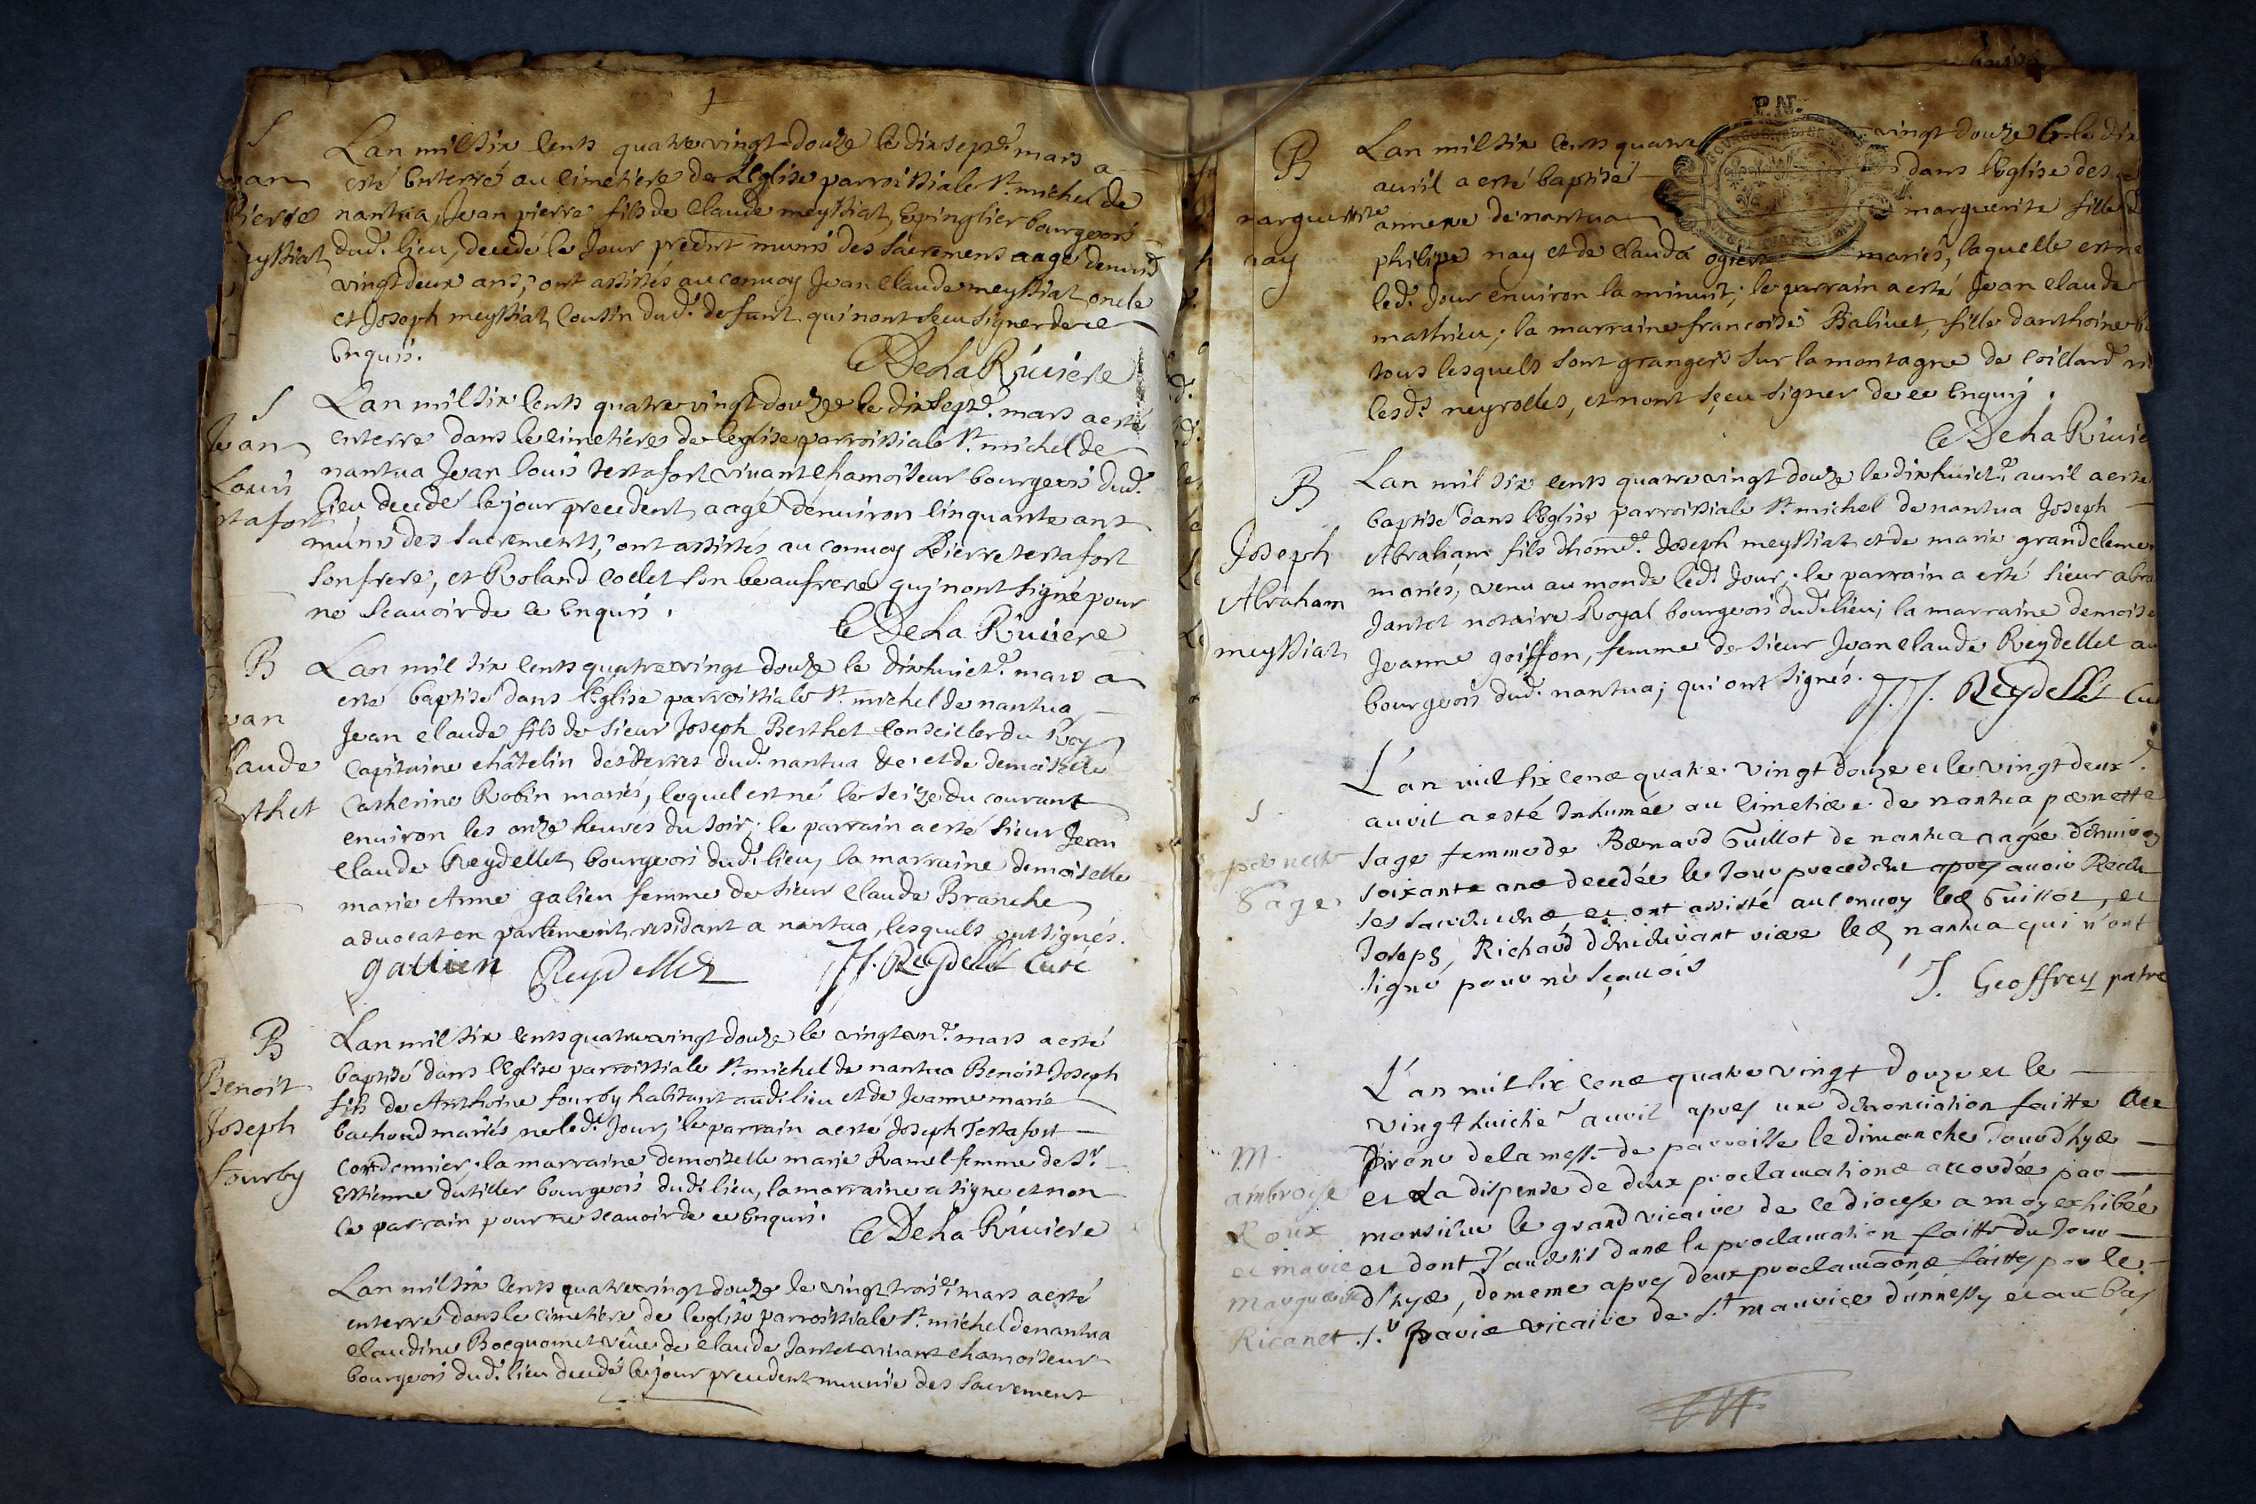 S
Lan mil six cents quatre vingt douze le dixsept.e mars a
esté enterré au cimetiere de Leglise parroissiale S.t michel de
nantua, Jean pierre fils de Claude meyssiat, Epinglier bourgeois
dud. lieu, decedé le Jour preced.nt muni des sacremens aagé denvir.
vingt deux ans, ont assistés au convoy Jean Claude meyssiat oncle
et Joseph meyssiat Cousin dud. defunt qui nont sceu signer de ce
Enquis.
C Dela Riviere
S
Jean
Louis
Lan mil six cents quatre vingt douze le dixsept.e mars a esté
enterré dans le cimetiere de leglise parroissiale S.t michel de
nantua Jean louis testafort vivant Chamoiseur bourgeois dud.
lieu decedé le jour precedent, aagé denviron cinquante ans
muni des sacrements, ont assistés au convoy Pierre testafort
son frere, et Roland collet son beaufrere quj nont signé pour
ne scavoir de ce Enquis.
C Dela Riviere
B
Lan mil six cents quatre vingt douze le dixhuict.e mars a
esté baptisé dans l'Eglise parroissiale S.t michel de nantua
Jean claude fils de sieur Joseph Berthet Conseiller du Roy
Capitaine châtelin des terres dud. nantua &c. et de demoiselle
Catherine Robin mariés, lequel est né le seize du courant
environ les onze heures du soir, le parrain a esté sieur Jean
Claude Reydellet bourgeois dud. lieu, la marraine demoiselle
marie Anne galien femme de sieur Claude Branche
advocat en parlement residant a nantua, lesquels ont signés.
gallien Reydellet JJ. Reydellet Curé
B
Benoit
Joseph
fourby
Lan mil six cents quatre vingt douze le vingt un.e mars a esté
baptisé dans l'Eglise parroissiale S.t michel de nantua Benoit Joseph
fils de Anthoine fourby habitant aud. lieu et de Jeanne marie
bachoud mariés, né led. Jour, le parrain a esté Joseph Testafort
Cordonnier, la marraine demoiselle marie Ramel femme de S.r
Estienne dutiller bourgeois dud. lieu, la marraine a signé et non
le parrain pour ne scavoir de ce Enquis.
C Dela Riviere
Lan mil six cents quatre vingt douze le vingt trois.e mars a esté
enterré dans le cimetiere de leglise parroissiale S.t michel de nantua
Claudine Bocquomet veuve de Claude Jantet vivant chamoiseur
bourgeois dud. lieu decedé le jour precedent munie des sacrement
P.N.
B
marguerite
nay
Lan mil six cents quatre vingt douze le dix
avril a esté baptisé dans l'Eglise des
annexe de nantua marguerite fille d
philipe nay et de Clauda ogier mariés, laquelle est né
led. Jour environ la minuit, le parrain a esté Jean Claude
mathieu, la marraine francoise Balivet, fille danthoine
tous lesquels sont grangers sur la montagne de Coillard
lesd. neyrolles, et nont sçeu signer de ce Enquis.
C Dela Rivie
B
Joseph
Abraham
meyssiat
Lan mil six cents quatre vingt douze le dixhuict.e avril a esté
baptisé dans l'Eglise parroissiale S.t michel de nantua Joseph
Abraham fils dhon.e Joseph meyssiat et de marie grandclemen
mariés, venu au monde led. Jour, le parrain a esté sieur abra
Jantet notaire Royal bourgeois dud. lieu, la marraine demoise
Jeanne goiffon, femme de sieur Jean claude Reydellet au
bourgeois dud. nantua, qui ont signés.
JJ. Reydellet Cu
S
pernette
Sage
L'an mil six cens quatre vingt douze et le vingt deux.e
avril a esté Inhumée au Cimetiere de nantua pernette
Sage femme de Bernard Guillot de nantua aagée d'environ
soixante ans decedée le Jour precedent apres avoir Receu
ses sacremens et ont assisté au Convoy led Guillot, et
Joseph Richard demeurant riere led nantua qui n'ont
signé pour ne sçavois
J. Geoffrey prtre
M
ambroise
Roux
et marie
marguerite
Ricanet
L'an mil six cens quatre vingt douze et le
vingt huictie.e avril apres une dénonciation faitte au
prône de la mess. de parroisse le dimanche Jour d'hyer
et La dispense de deux proclamations accordée par
monsieur le grand vicaire de ce diocese a moy exhibée
et dont J'averti dans la proclamation faitte du Jour
d'hyer, de meme apres deux proclamaõns faittes par le
S.r pavie vicaire de S.t maurice d'annessy et au bas